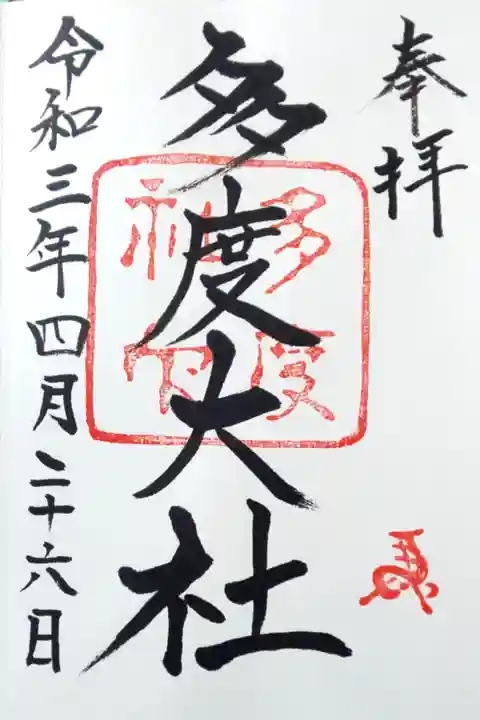 奉拝
多度大社
令和三年四月二十六日
多度
神宮